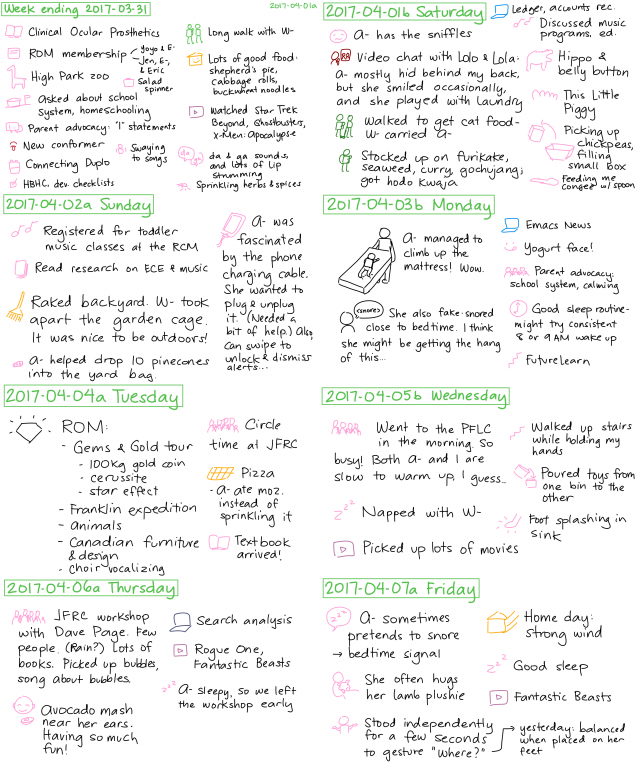 Week ending 2017-03-31
2017-04-01a
Clinical Ocular Prosthetics
ROM membership
yoyo & E-
Jen, E-,
& Eric
High Park zoo
Salad
spinner
Asked about school
System, homeschooling
Parent advocacy: "I" statements
New conformer
Swaying
to songs
Connecting Duplo
HBHC. dev. checklists
Long walk with W-
Lots of good food:
shepherd's pie,
cabbage rolls,
buckwheat noodles
Watched Star Trek
Beyond, Ghostbusters,
X-Men: Apocalypse
da & ga sounds,
and lots of lip
strumming
Sprinkling herbs & spices
2017-04-01b Saturday
A- has the sniffles
Video chat with Lolo & Lola:
A- mostly hid behind my back,
but she smiled occasionally,
and she played with laundry
Walked to get cat food-
W- carried A-
Stocked up on furikake,
seaweed, curry, gochujang;
got hodo kwaja
Ledger, accounts rec.
Discussed music
programs, ed.
Hippo &
belly button
This Little
Piggy
Picking up
chickpeas,
filling
small box
Feeding me
congee w/ spoon
2017-04-02a Sunday
Registered for toddler
music classes at the RCM
Read research on ECE & music
Raked backyard. W- took
apart the garden cage.
It was nice to be outdoors!
A- helped drop 10 pinecones
into the yard bag.
A- was
fascinated
by the phone
charging cable.
She wanted to
plug & unplug
it. (Needed a
bit of help.) Also,
can swipe to
unlock & dismiss
alerts...
2017-04-03b Monday
A- managed to
climb up the
mattress! Wow.
(snore)
She also fake-snored
close to bedtime. I think
she might be getting the hang
of this...
Emacs News
Yogurt face!
Parent advocacy:
school system, calming
Good sleep routine-
might try consistent
8 or 9 AM wake up
FutureLearn
2017-04-04a Tuesday
ROM:
- Gems & Gold tour
- 100kg gold coin
- cerussite
- star effect
- Franklin expedition
- animals
- Canadian furniture
& design
- choir vocalizing
Circle
time at JFRC
Pizza
- A- ate moz.
instead of
sprinkling it
Textbook
arrived!
2017-04-05b Wednesday
Went to the PFLC
in the morning. So
busy! Both A- and I are
slow to warm up, I guess...
zzz
Napped with W-
Picked up lots of movies
Walked up stairs
while holding my
hands
Poured toys from
one bin to the
other
Foot splashing in
sink
2017-04-06a Thursday
JFRC workshop
with Dave Page. Few
people. (Rain?) Lots of
books. Picked up bubbles,
song about bubbles.
Avocado mash
near her ears.
Having so much
fun!
Search analysis
Rogue One,
Fantastic Beasts
zzz
A- sleepy, so we left
the workshop early
2017-04-07a Friday
zzz
A- sometimes
pretends to snore
→ bedtime signal
She often hugs
her lamb plushie
Stood independently
for a few seconds
to gesture "Where?"
yesterday: balanced
when placed on her
feet
Home day:
strong wind
zzz
Good sleep
Fantastic Beasts